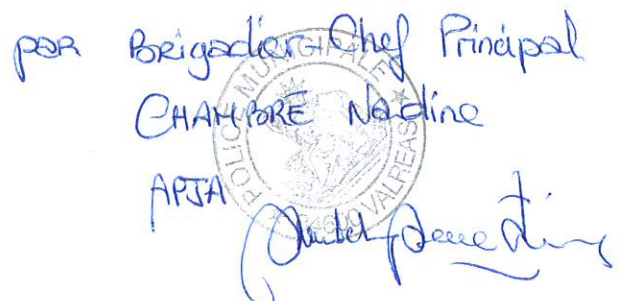 par Brigadier-Chef Principal
CHAMBRE Nadine
APJA
POLICE MUNICIPALE
84600 VALREAS